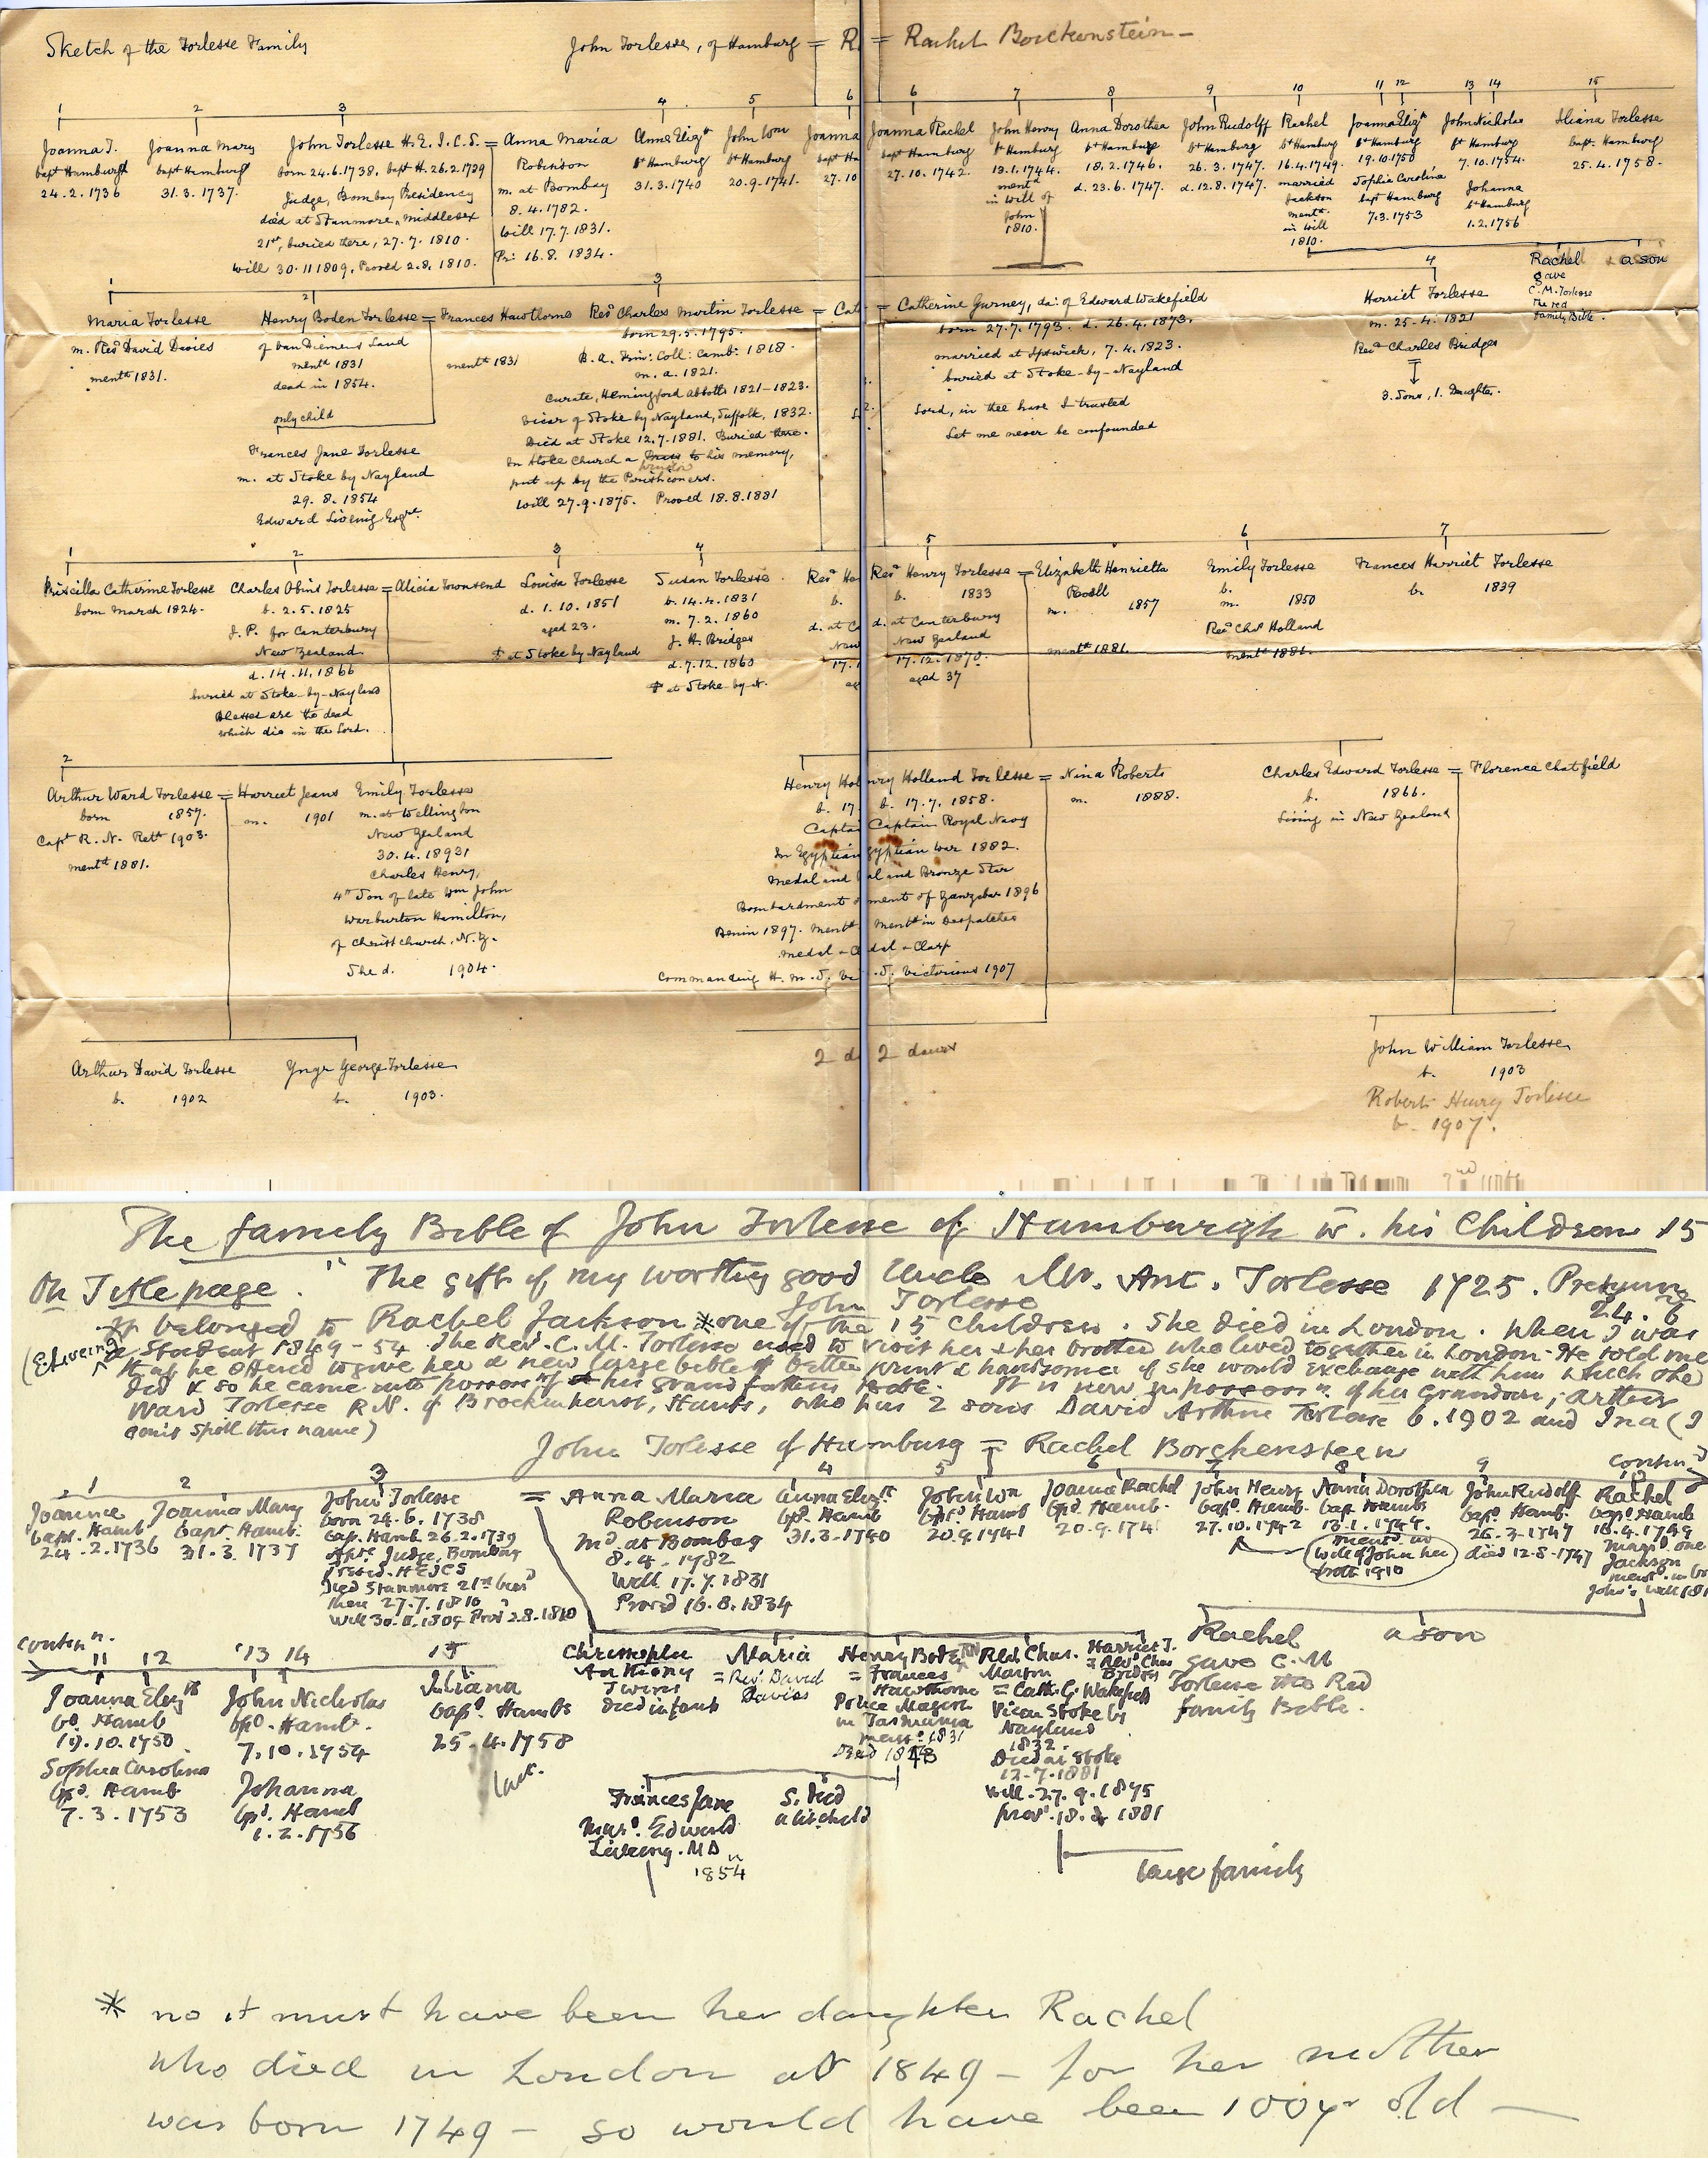 Sketch of the Torlesse Family
John Torlesse, of Hamburg = R = Rachel Borckenstein -
1 2 3 4 5 6 6 7 8 9 10 11 12 13 14 15
Joanna T.
bapt Hamburgh
24.2.1736
Joanna Mary
bapt Hamburg
31.3.1737.
John Torlesse H.E.I.C.S. =
born 24.6.1738, bapt H. 26.2.1739
Judge, Bombay Presidency
died at Stanmore, Middlesex
21st, buried there, 27.7.1810.
Will 30.11 1809, Proved 2.8.1810.
Anna Maria
Robinson
m. at Bombay
8.4.1782.
Will 17.7.1831.
Pr: 16.8.1834.
Anne Elizth
bt Hamburg
31.3.1740
John Wm
bt Hamburg
20.9.1741.
Joanna
bapt Ha
27.10
Joanna Rachel
bapt Hamburg
27.10.1742.
John Henry
bt Hamburg
13.1.1744.
mentd
in Will of
John
1810.
Anna Dorothea
bt Hamburg
18.2.1746.
d. 23.6.1747.
John Rudolff
bt Hamburg
26.3.1747.
d. 12.8.1747.
Rachel
bt Hamburg
16.4.1749.
married
Jackson
mentd
in Will
1810.
Joanna Elizth
bt Hamburg
19.10.1750
Sophia Carolina
bapt Hamburg
7.3.1753
John Nicholas
bt Hamburg
7.10.1754.
Johanna
bt Hamburg
1.2.1756
Iliana Torlesse
bapt. Hamburg
25.4.1758.
Rachel
gave
C.M. Torlesse
The red
Family Bible.
a son
1 2 3 4
Maria Torlesse
m. Revd David Davies
mentd 1831.
Henry Boden Torlesse =
of Van Diemens Land
mentd 1831
dead in 1854.
only child
Frances Hawthorne
mentd 1831
Frances Jane Torlesse
m. at Stoke by Nayland
29.8.1854
Edward Liveing Esqre.
Revd Charles Martin Torlesse = Cat
born 29.5.1795.
B.A. Trin: Coll: Camb: 1818.
M.A. 1821.
Curate, Hemingford Abbotts 1821-1823.
Vicar of Stoke by Nayland, Suffolk, 1832.
Died at Stoke 12.7.1881. Buried there.
In Stoke Church a Brass to his memory,
window
put up by the Parishioners.
Will 27.9.1875. Proved 18.8.1881
= Catherine Gurney, da: of Edward Wakefield
born 27.7.1793. d. 26.4.1873.
married at Ipswich, 7.4.1823.
buried at Stoke-by-Nayland
Lord, in thee have I trusted
Let me never be confounded
Harriet Torlesse
m. 25.4.1821
Revd Charles Bridges
3. Sons, 1. Daughter.
1 2 3 4 5 6 7
Priscilla Catherine Torlesse
born March 1824.
Charles Obins Torlesse = Alicia Townsend
b. 2.5.1825
J.P. for Canterbury
New Zealand
d. 14.11.1866
buried at Stoke-by-Nayland
Blessed are the dead
which die in the Lord.
Louisa Torlesse
d. 1.10.1851
aged 23.
at Stoke by Nayland
Susan Torlesse.
b. 14.4.1831
m. 7.2.1860
J.H. Bridges
d. 7.12.1860
at Stoke-by-N.
Revd He
b.
d. at C
New
17.1
ag
Revd Henry Torlesse =
b. 1833
d. at Canterbury
New Zealand
17.12.1870.
aged 37
Elizabeth Henrietta
m. 1857
mentd 1881.
Emily Torlesse
b.
m. 1850
Revd Chas Holland
mentd 1881.
Frances Harriet Torlesse
b. 1839
2
Arthur Ward Torlesse =
born 1857.
Capt R.N. Retd 1903.
mentd 1881.
Harriet Jeans
m. 1901
Emily Torlesse
m. at Wellington
New Zealand
30.4.18931
Charles Henry,
4th Son of late Wm John
Warburton Hamilton,
of Christchurch, N.Z.
She d. 1904.
Henry Hol
b. 17
Captai
In Egyptian
Medal and
Bombardment o
Benin 1897. Mentd
Medal + C
Commanding H.M.S. Vi
nry Holland Torlesse = Nina Roberts
b. 17.7.1858.
m. 1888.
Captain Royal Navy
gyptian War 1882.
al and Bronze Star
ment of Zanzibar 1896
Mentd in Despatches
dal + Clasp
.S. Victorious 1907
Charles Edward Torlesse = Florence Chatfield
b. 1866.
living in New Zealand
Arthur David Torlesse
b. 1902
Yngr George Torlesse
b. 1903.
2 d 2 daurs
John William Torlesse
b. 1903
Robert Henry Torlesse
b- 1907.
The family Bible of John Torlesse of Hamburgh w. his Children 15
On Title page. " The gift of my worthy good Uncle Mr. Ant. Torlesse 1725.
John Torlesse 24. 6
It belonged to Rachel Jackson * one of the 15 children. She died in London. When I was
(E Liveing) a Student 1849-54 The Rev. C.M. Torlesse used to visit her & her brother who lived together in London - He told me
that he offered to give her a new large bible of better print & handsomer if she would exchange with him which she
did & so he came into possessn of his grandfathers Bible. It is now in possessn of his Grandson, Arthur
Ward Torlesse R.N. of Brockenhurst, Hants, who has 2 sons David Arthur Torlesse b. 1902 and Ina (I
can't spell this name)
John Torlesse of Hamburg = Rachel Borchenstein
contind
1 2 3 4 5 6 7 8 9 10
Joanna
bapt. Hamb
24.2.1736
Joanna Mary
bapt. Hamb.
31.3.1737
John Torlesse =
born 24.6.1738
bap. Hamb 26.2.1739
Judge, Bombay
Presid. HEICS
Died Stanmore 21st bur
there 27.7.1810
Will 30.11.1809 Provd 2.8.1810
Anna Maria
Robinson
Md. at Bombay
8.4.1782
Will 17.7.1831
Proved 16.8.1834
Anna Elizth
bpd. Hamb
31.3.1740
John Wm
bpd. Hamb
20.9.1741
Joanna Rachel
bpd. Hamb.
20.9.174
John Henry
bapd. Hamb.
27.10.1742
Anna Dorothea
bap Hamb
13.1.1744.
mentd in
Will of John her
broth 1910
John Rudolf
bapd. Hamb.
26.3.1747
died 12-8-1747
Rachel
bapd Hamb
16.4.1749
marrd one
Jackson
ment. in
John's Will 181
Rachel
gave C.M
Torlesse the Red
family Bible.
a son
contn.
11 12 13 14 15
Joanna Elizth
bd. Hamb
19.10.1750
Sophia Carolina
bpd. Hamb
7.3.1753
John Nicholas
bpd. Hamb.
7.10.1754
Johanna
bpd. Hamb
1.2.1756
Juliana
bapd. Hambs
25.4.1758
last.
Christopher
Anthony
Twins
Died infants
Maria
= Rev. David
Davies
Henry Boden
= Frances
Hawthorne
Police Magistr
in Tasmania
ment. 1831
Revd Chas.
Martin
= Cath. G. Wakefield
Vicar Stoke by
Nayland
1832.
Died at Stoke
12-7-1881
Will-27.9.1875
prov. 18.8 1881
Harriet T.
= Revd Chas
Bridges
Frances Jane
Mard. Edward
Liveing. MD
1854
S. Died
a lit. child
large family
* no it must have been her daughter Rachel
who died in London abt 1849 - for her mother
was born 1749 - so would have been 100yr old -